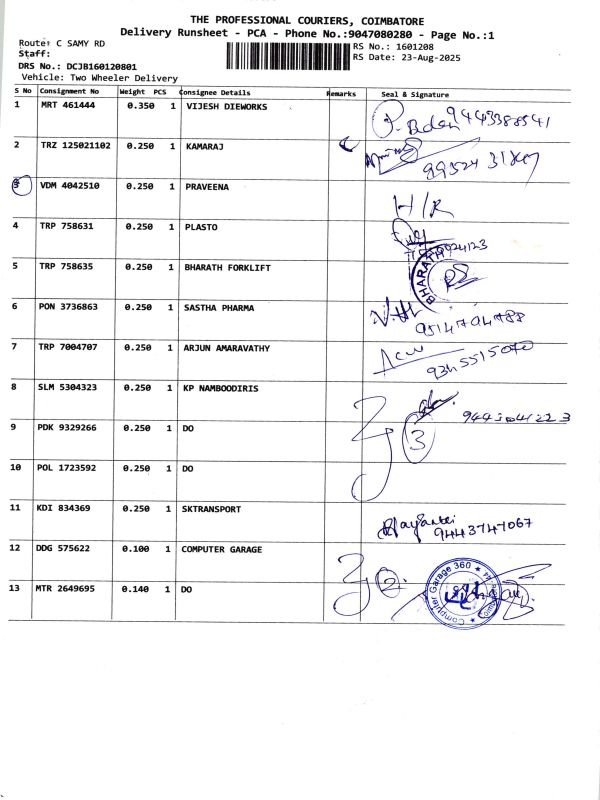 THE PROFESSIONAL COURIERS, COIMBATORE
Delivery Runsheet - PCA - Phone No.:9047080280 - Page No.:1
Route: C SAMY RD
RS No.: 1601208
Staff:
RS Date: 23-Aug-2025
DRS No.: DCJB160120801
Vehicle: Two Wheeler Delivery
S No Consignment No Weight PCS Consignee Details Remarks Seal & Signature
1 MRT 461444 0.350 1 VIJESH DIEWORKS 9443388541
2 TRZ 125021102 0.250 1 KAMARAJ
3 VDM 4042510 0.250 1 PRAVEENA H/R
4 TRP 758631 0.250 1 PLASTO
5 TRP 758635 0.250 1 BHARATH FORKLIFT BHARATH
6 PON 3736863 0.250 1 SASTHA PHARMA 9514794788
7 TRP 7004707 0.250 1 ARJUN AMARAVATHY
8 SLM 5304323 0.250 1 KP NAMBOODIRIS
9 PDK 9329266 0.250 1 DO 3
10 POL 1723592 0.250 1 DO
11 KDI 834369 0.250 1 SKTRANSPORT 9443747067
12 DDG 575622 0.100 1 COMPUTER GARAGE
13 MTR 2649695 0.140 1 DO 2 Computer Garage 360